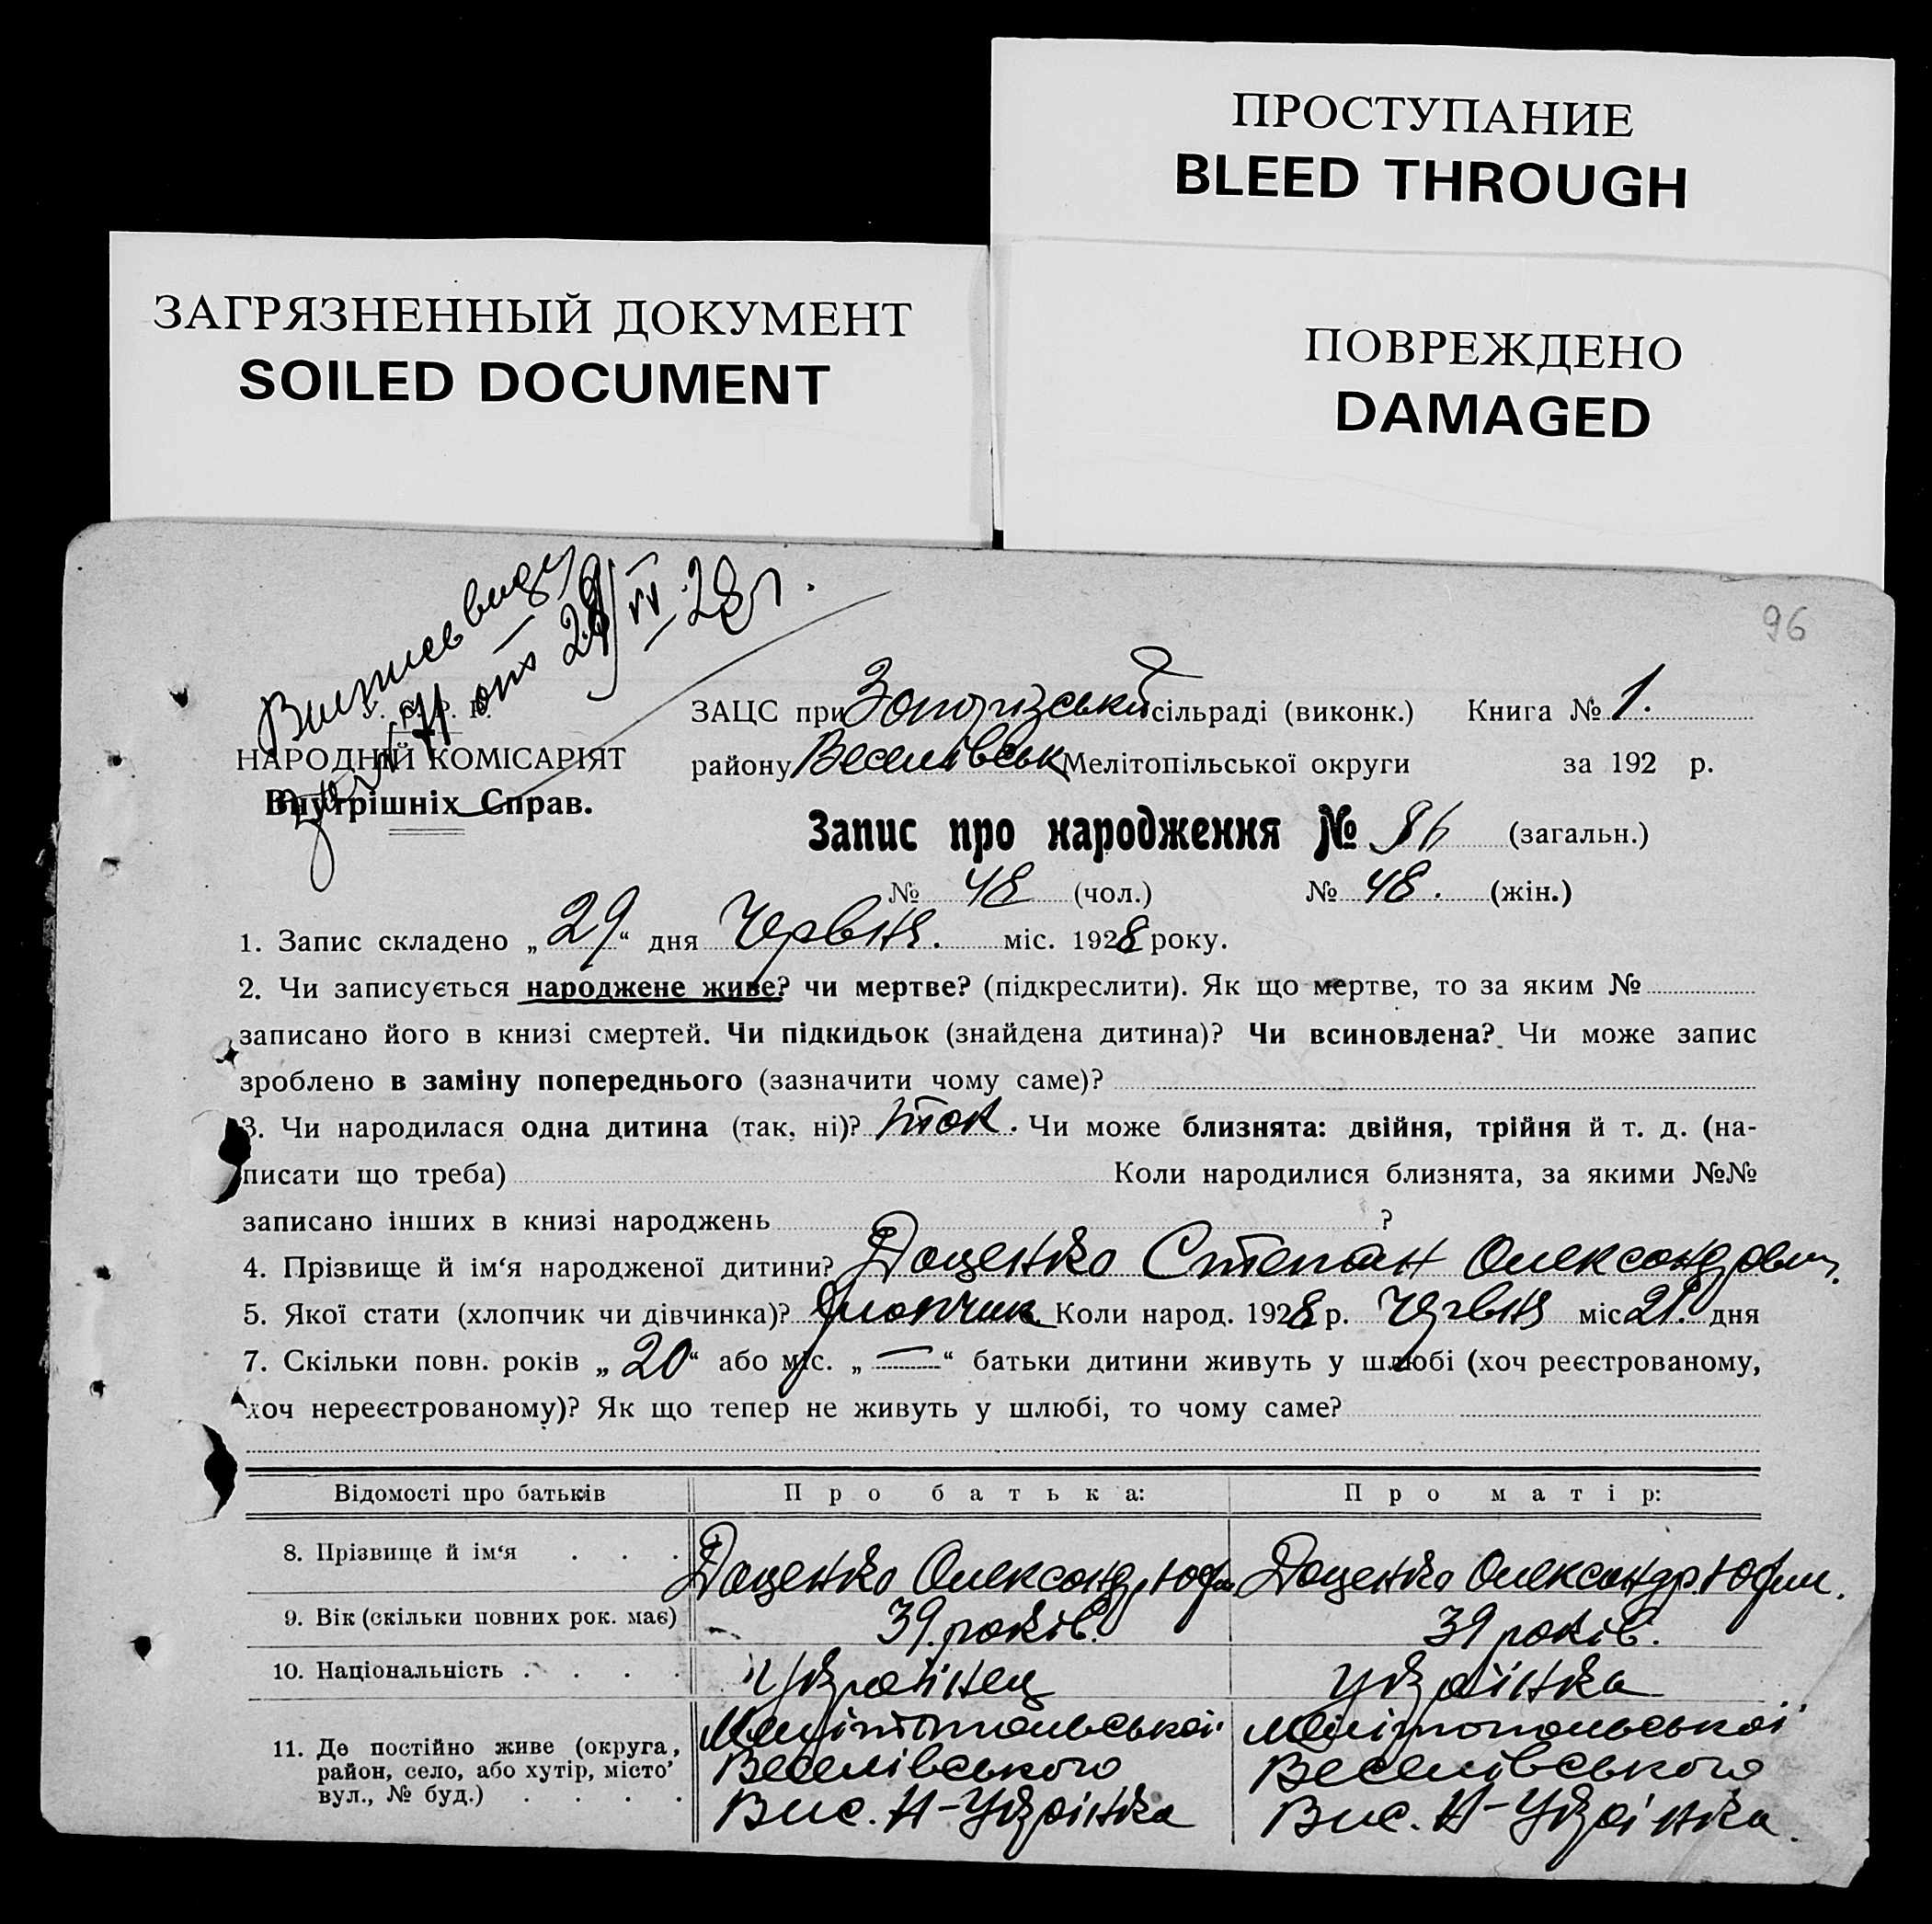 ПРОСТУПАНИЕ
BLEED THROUGH
ЗАГРЯЗНЕННЫЙ ДОКУМЕНТ
SOILED DOCUMENT
ПОВРЕЖДЕНО
DAMAGED
96
от 28/VI 28 г.
У. С. Р. Р.
НАРОДНІЙ КОМІСАРІЯТ
Внутрішніх Справ.
ЗАЦС при сільраді (виконк.) Книга № 1.
району Веселівськ Мелітопільської округи за 192 р.
Запис про народження № 96 (загальн.)
№ 48 (чол.) № 48. (жін.)
1. Запис складено „29“ дня Червня. міс. 1928 року.
2. Чи записується народжене живе? чи мертве? (підкреслити). Як що мертве, то за яким №
записано його в книзі смертей. Чи підкидьок (знайдена дитина)? Чи всиновлена? Чи може запис
зроблено в заміну попереднього (зазначити чому саме)?
3. Чи народилася одна дитина (так, ні)? так. Чи може близнята: двійня, трійня й т. д. (на-
писати що треба) Коли народилися близнята, за якими №№
записано інших в книзі народжень ?
4. Прізвище й ім‘я народженої дитини? Доценко Степан Олександрович.
5. Якої стати (хлопчик чи дівчинка)? Хлопчик. Коли народ. 1928 р. Червня міс 21. дня
7. Скільки повн. років „20“ або міс. „—“ батьки дитини живуть у шлюбі (хоч реєстрованому,
хоч нереєстрованому)? Як що тепер не живуть у шлюбі, то чому саме?
Відомості про батьків Про батька: Про матір:
8. Прізвище й ім‘я . . . Доценко Олександр Юфим Доценко Олександр. Юфим.
9. Вік (скільки повних рок. має) 39 років. 39 років.
10. Національність . . . . Українец Українка
11. Де постійно живе (округа, район, село, або хутір, місто, вул., № буд.) . . . .
Мелітопольської Мелітопольської
Веселівського Веселівського
Вис. Н-Українка Вис. Н-Українка.